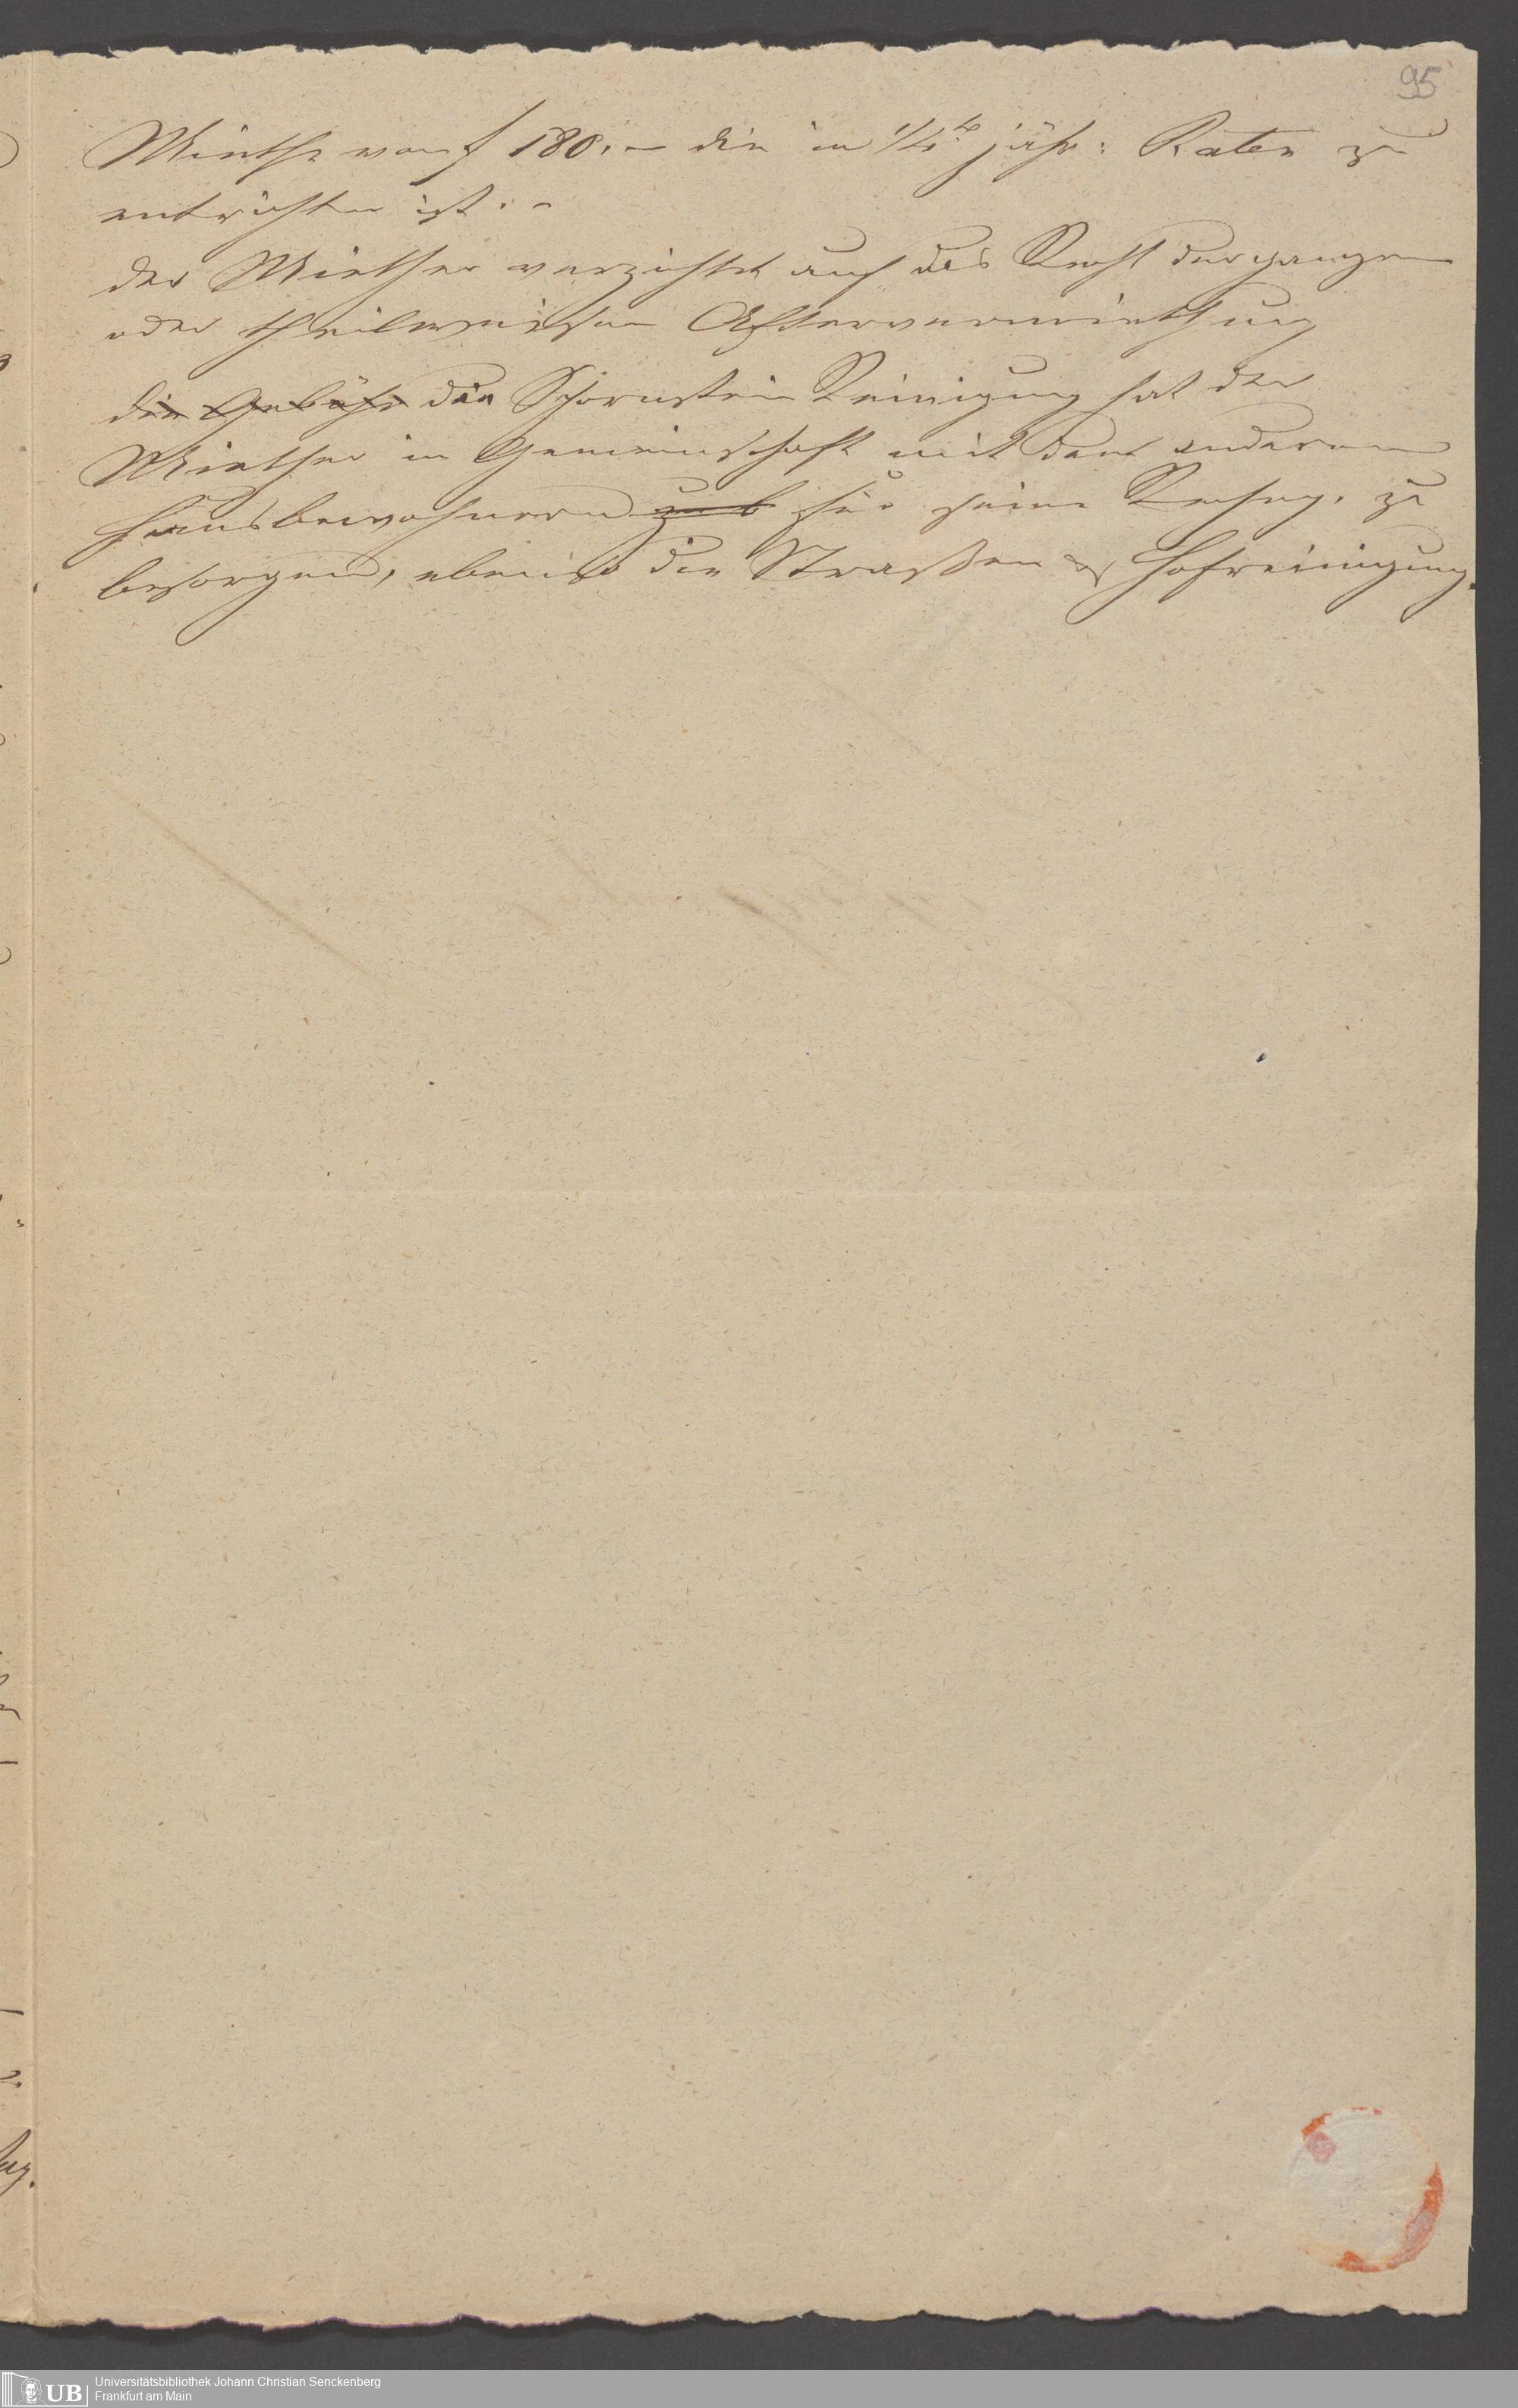 95
Miethe von f 180.– die in 1/4tl jähr: Raten zu
entrichten ist. –
der Miether verzichtet auf das Recht der ganzen
oder theilweisen Aftervermiethung
die Gebühr die Schornstein Reinigung hat der
Miether in Gemeinschaft mit den anderen
Hausbewohnern zu b für seine Rechng. zu
besorgen, ebenso die Straßen & Hofreinigung.
ng.
UB Universitätsbibliothek Johann Christian Senckenberg
Frankfurt am Main